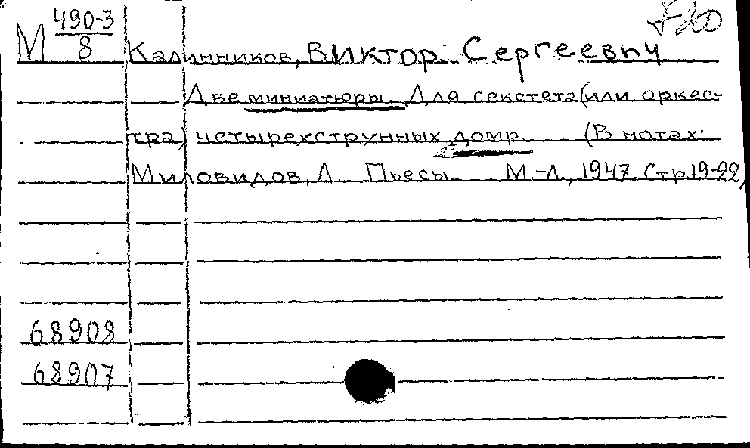 М 490-3
8
Калинников, Виктор Сергеевич
Две миниатюры. Для секстета (или оркес-
тра) четырехструнных домр. (В нотах:
Миловидов, А. Пьесы. М-Л, 1947. Стр. 19-22)
68908
68907